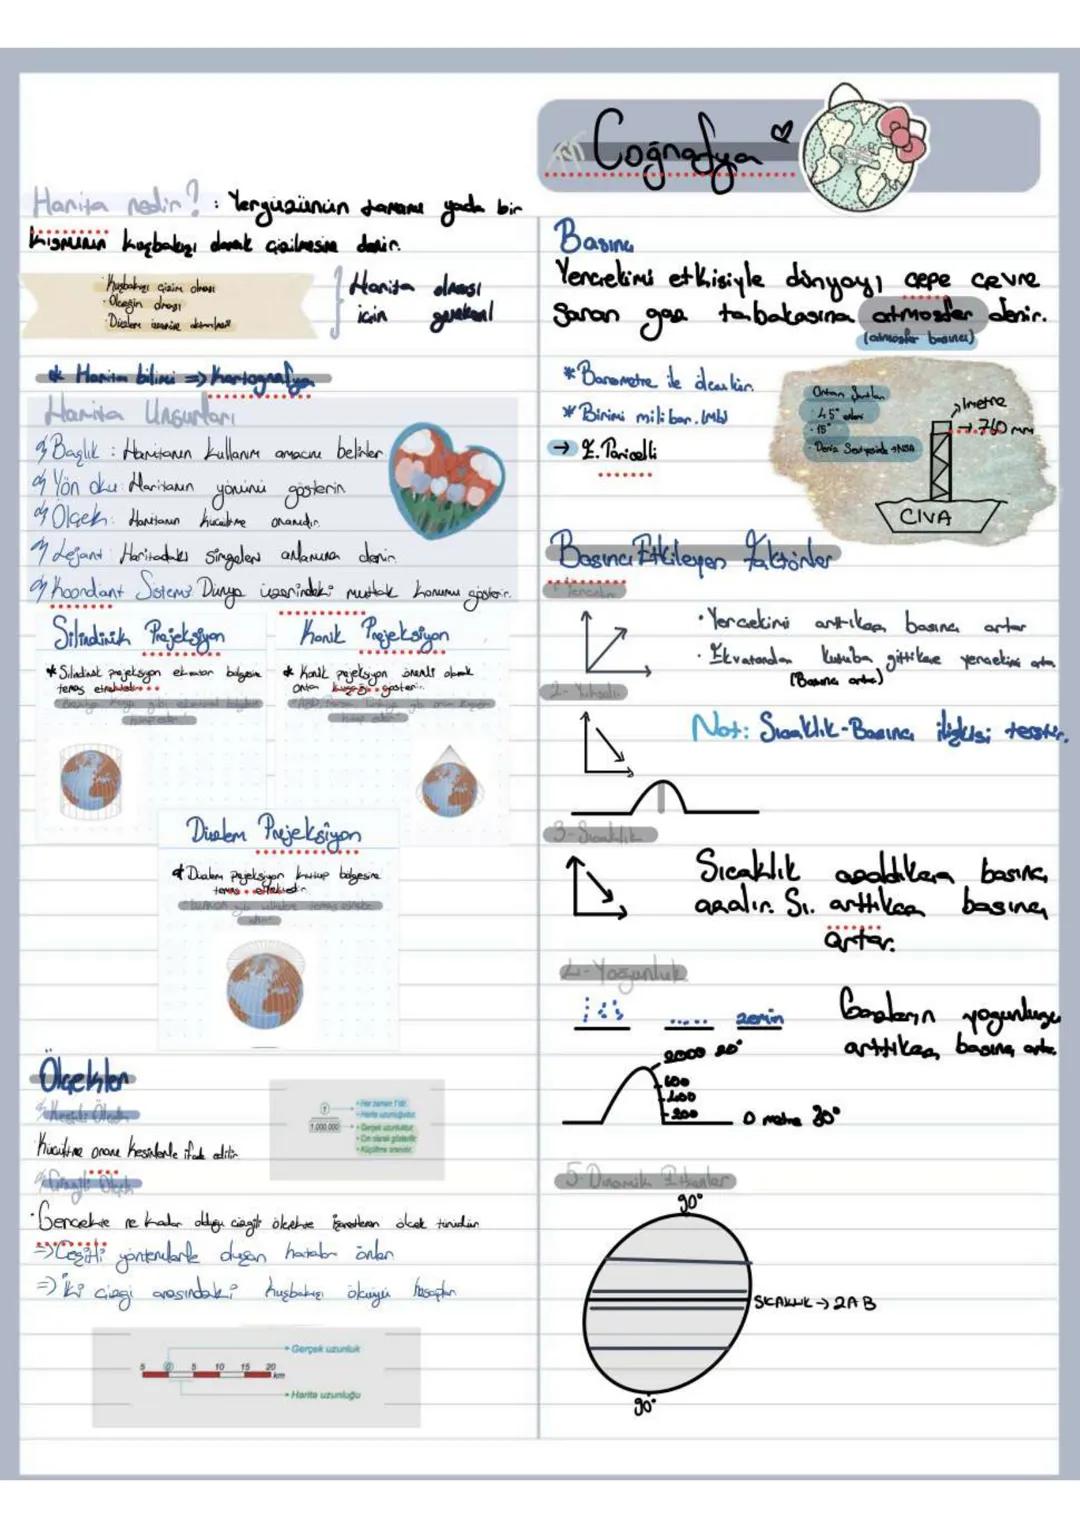 Coğrafya
Harita nedir? : Yeryüzünün tamamı yada bir
kısmının kuşbakışı olarak çizilmesine denir.
Kuşbakışı çizim olması
Ölçeğin olması
Düzlem üzerine aktarılması
Harita olması
için gerekenl
* Harita bilimi ⇒ Kartografya
Harita Unsurları
Başlık : Haritanın kullanım amacını belirler
Yön oku: Haritanın yönünü gösterir
Ölçek: Haritanın küçültme oranıdır.
Lejant: Haritadaki simgelerin anlamına denir
Koordinat Sistemi: Dünya üzerindeki mutlak konumu gösterir.
Silindirik Projeksiyon
* Silindirik projeksiyon ekvator bölgesine
temas etmektedir
Konik Projeksiyon
* Konik projeksiyon önemli olarak
orta kuşağı gösterir.
Düzlem Projeksiyon
* Düzlem projeksiyon kutup bölgesine
temas etmektedir
Ölçekler
Kesirli Ölçek
Küçültme oranı kesirlerle ifade edilir
1
1.000.000
Her zaman 1'dir.
Harita uzunluğudur.
Gerçek uzunluktur.
Cm olarak gösterilir.
Küçültme oranıdır.
Çizgili Ölçek
Gerçekte ne kadar olduğu çizgili ölçekte gösteren ölçek türüdür
⇒ Çeşitli yöntemlerle oluşan hatalar önler
⇒ İki çizgi arasındaki kuşbakışı ölçüyü hesaplar
Gerçek uzunluk
5 0 5 10 15 20
km
Harita uzunluğu
Basınç
Yerçekimi etkisiyle dünyayı çepe çevre
saran gaz tabakasına atmosfer denir.
(atmosfer basıncı)
* Barometre ile ölçülür.
* Birimi milibar. (Mb)
→ E. Toriçelli
Ortam Şartları
45° enlem
15°
Deniz Seviyesinde
1metre
→ 760 mm
CIVA
Basıncı Etkileyen Faktörler
1- Yerçekimi
• Yerçekimi arttıkça basınç artar
• Ekvatordan kutuba gittikçe yerçekimi artar
(Basınç artar)
2- Yükselti
Not: Sıcaklık-Basınç ilişkisi terstir.
3- Sıcaklık
Sıcaklık azaldıkça basınç
azalır. Sı. arttıkça basınç
artar.
4- Yoğunluk
zemin
Gazların yoğunluğu
arttıkça basınç artar.
2000 20°
600
400
200
0 metre 30°
5- Dinamik Etkenler
90°
SICAKLIK → 2AB
90°